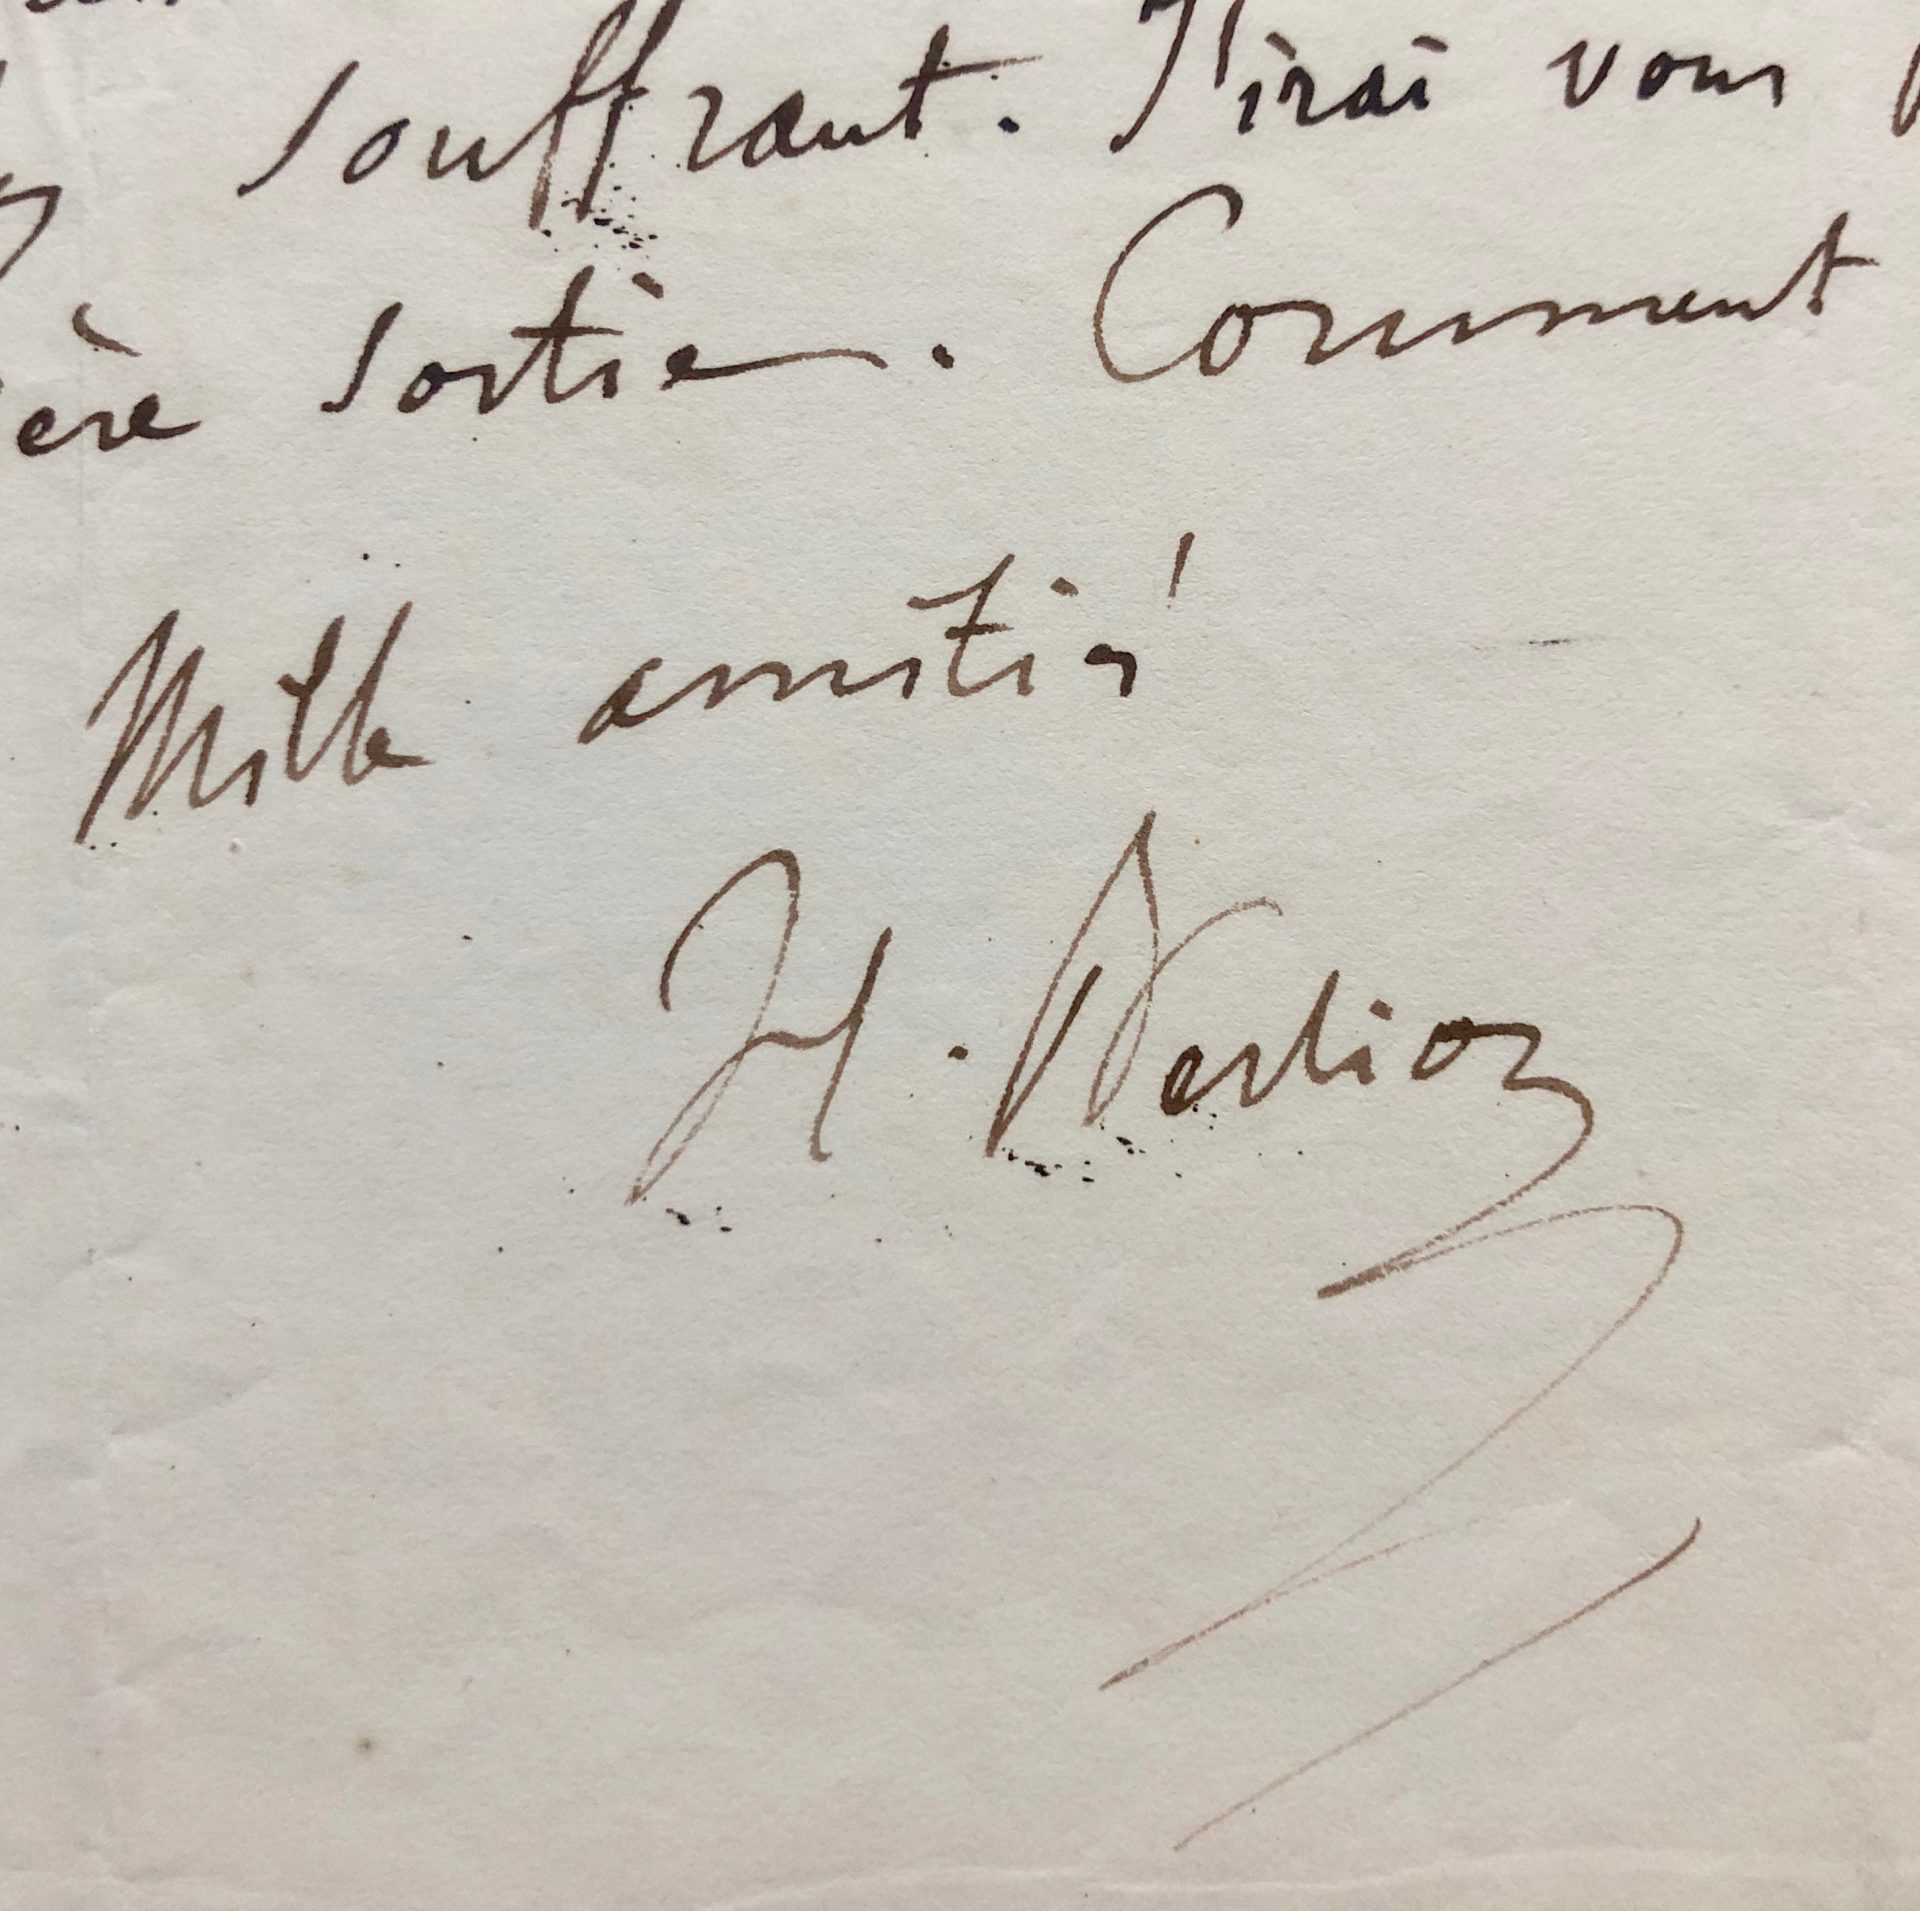 souffrant. J'irai vous
ère sortie. Comment
Mille amitiés
H. Berlioz